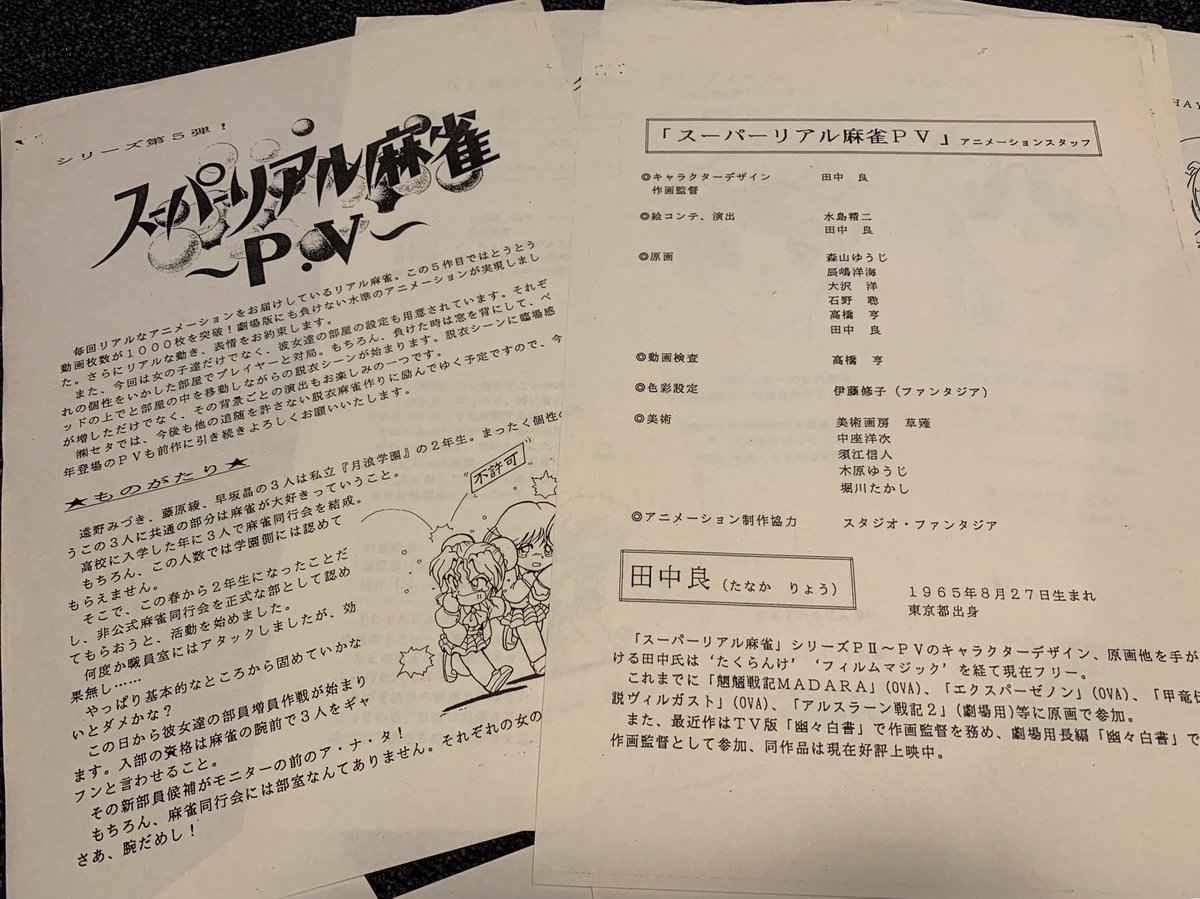 シリーズ第5弾！
スーパーリアル麻雀
～P.V～
毎回リアルなアニメーションをお届けしているリアル麻雀。この5作目ではとうとう
動画枚数が1000枚を突破！劇場版にも負けない水準のアニメーションが実現しまし
た。さらにリアルな動き、表情をお約束します。
また、今回は女の子達だけでなく、彼女達の部屋の設定も用意されています。それぞ
れの個性をいかした部屋でプレイヤーと対局。もちろん、負けた時は窓を背にして、ベ
ッドの上でと部屋の中を移動しながらの脱衣シーンが始まります。脱衣シーンに臨場感
が増しただけでなく、その背景ごとの演出もお楽しみの一つです。
㈱セタでは、今後も他の追随を許さない脱衣麻雀作りに励んでゆく予定ですので、今
年登場のPVも前作に引き続きよろしくお願いいたします。
★ものがたり★
遠野みづき、藤原綾、早坂晶の3人は私立『月浪学園』の2年生。まったく個性の
うこの3人に共通の部分は麻雀が大好きっていうこと。
高校に入学した年に3人で麻雀同行会を結成。
もちろん、この人数では学園側には認めて
もらえません。
そこで、この春から2年生になったことだ
し、非公式麻雀同行会を正式な部として認め
てもらおうと、活動を始めました。
何度か職員室にはアタックしましたが、効
果無し……
やっぱり基本的なところから固めていかな
いとダメかな？
この日から彼女達の部員増員作戦が始まり
ます。入部の資格は麻雀の腕前で3人をギャ
フンと言わせること。
その新部員候補がモニターの前のア・ナ・タ！
もちろん、麻雀同行会には部室なんてありません。それぞれの女の
さあ、腕だめし！
不許可
「スーパーリアル麻雀PV」アニメーションスタッフ
◎キャラクターデザイン 田中 良
作画監督
◎絵コンテ、演出 水島精二
田中 良
◎原画 森山ゆうじ
辰嶋洋海
大沢 洋
石野 聡
高橋 亨
田中 良
◎動画検査 高橋 亨
◎色彩設定 伊藤修子（ファンタジア）
◎美術 美術画房 草薙
中座洋次
須江信人
木原ゆうじ
堀川たかし
◎アニメーション制作協力 スタジオ・ファンタジア
田中良（たなか りょう） 1965年8月27日生まれ
東京都出身
「スーパーリアル麻雀」シリーズPⅡ～PVのキャラクターデザイン、原画他を手が
ける田中氏は‘たくらんけ’‘フィルムマジック’を経て現在フリー。
これまでに「魍魎戦記MADARA」(OVA)、「エクスパーゼノン」(OVA)、「甲竜伝
説ヴィルガスト」(OVA)、「アルスラーン戦記2」(劇場用)等に原画で参加。
また、最近作はTV版「幽々白書」で作画監督を務め、劇場用長編「幽々白書」で
作画監督として参加、同作品は現在好評上映中。
HAY